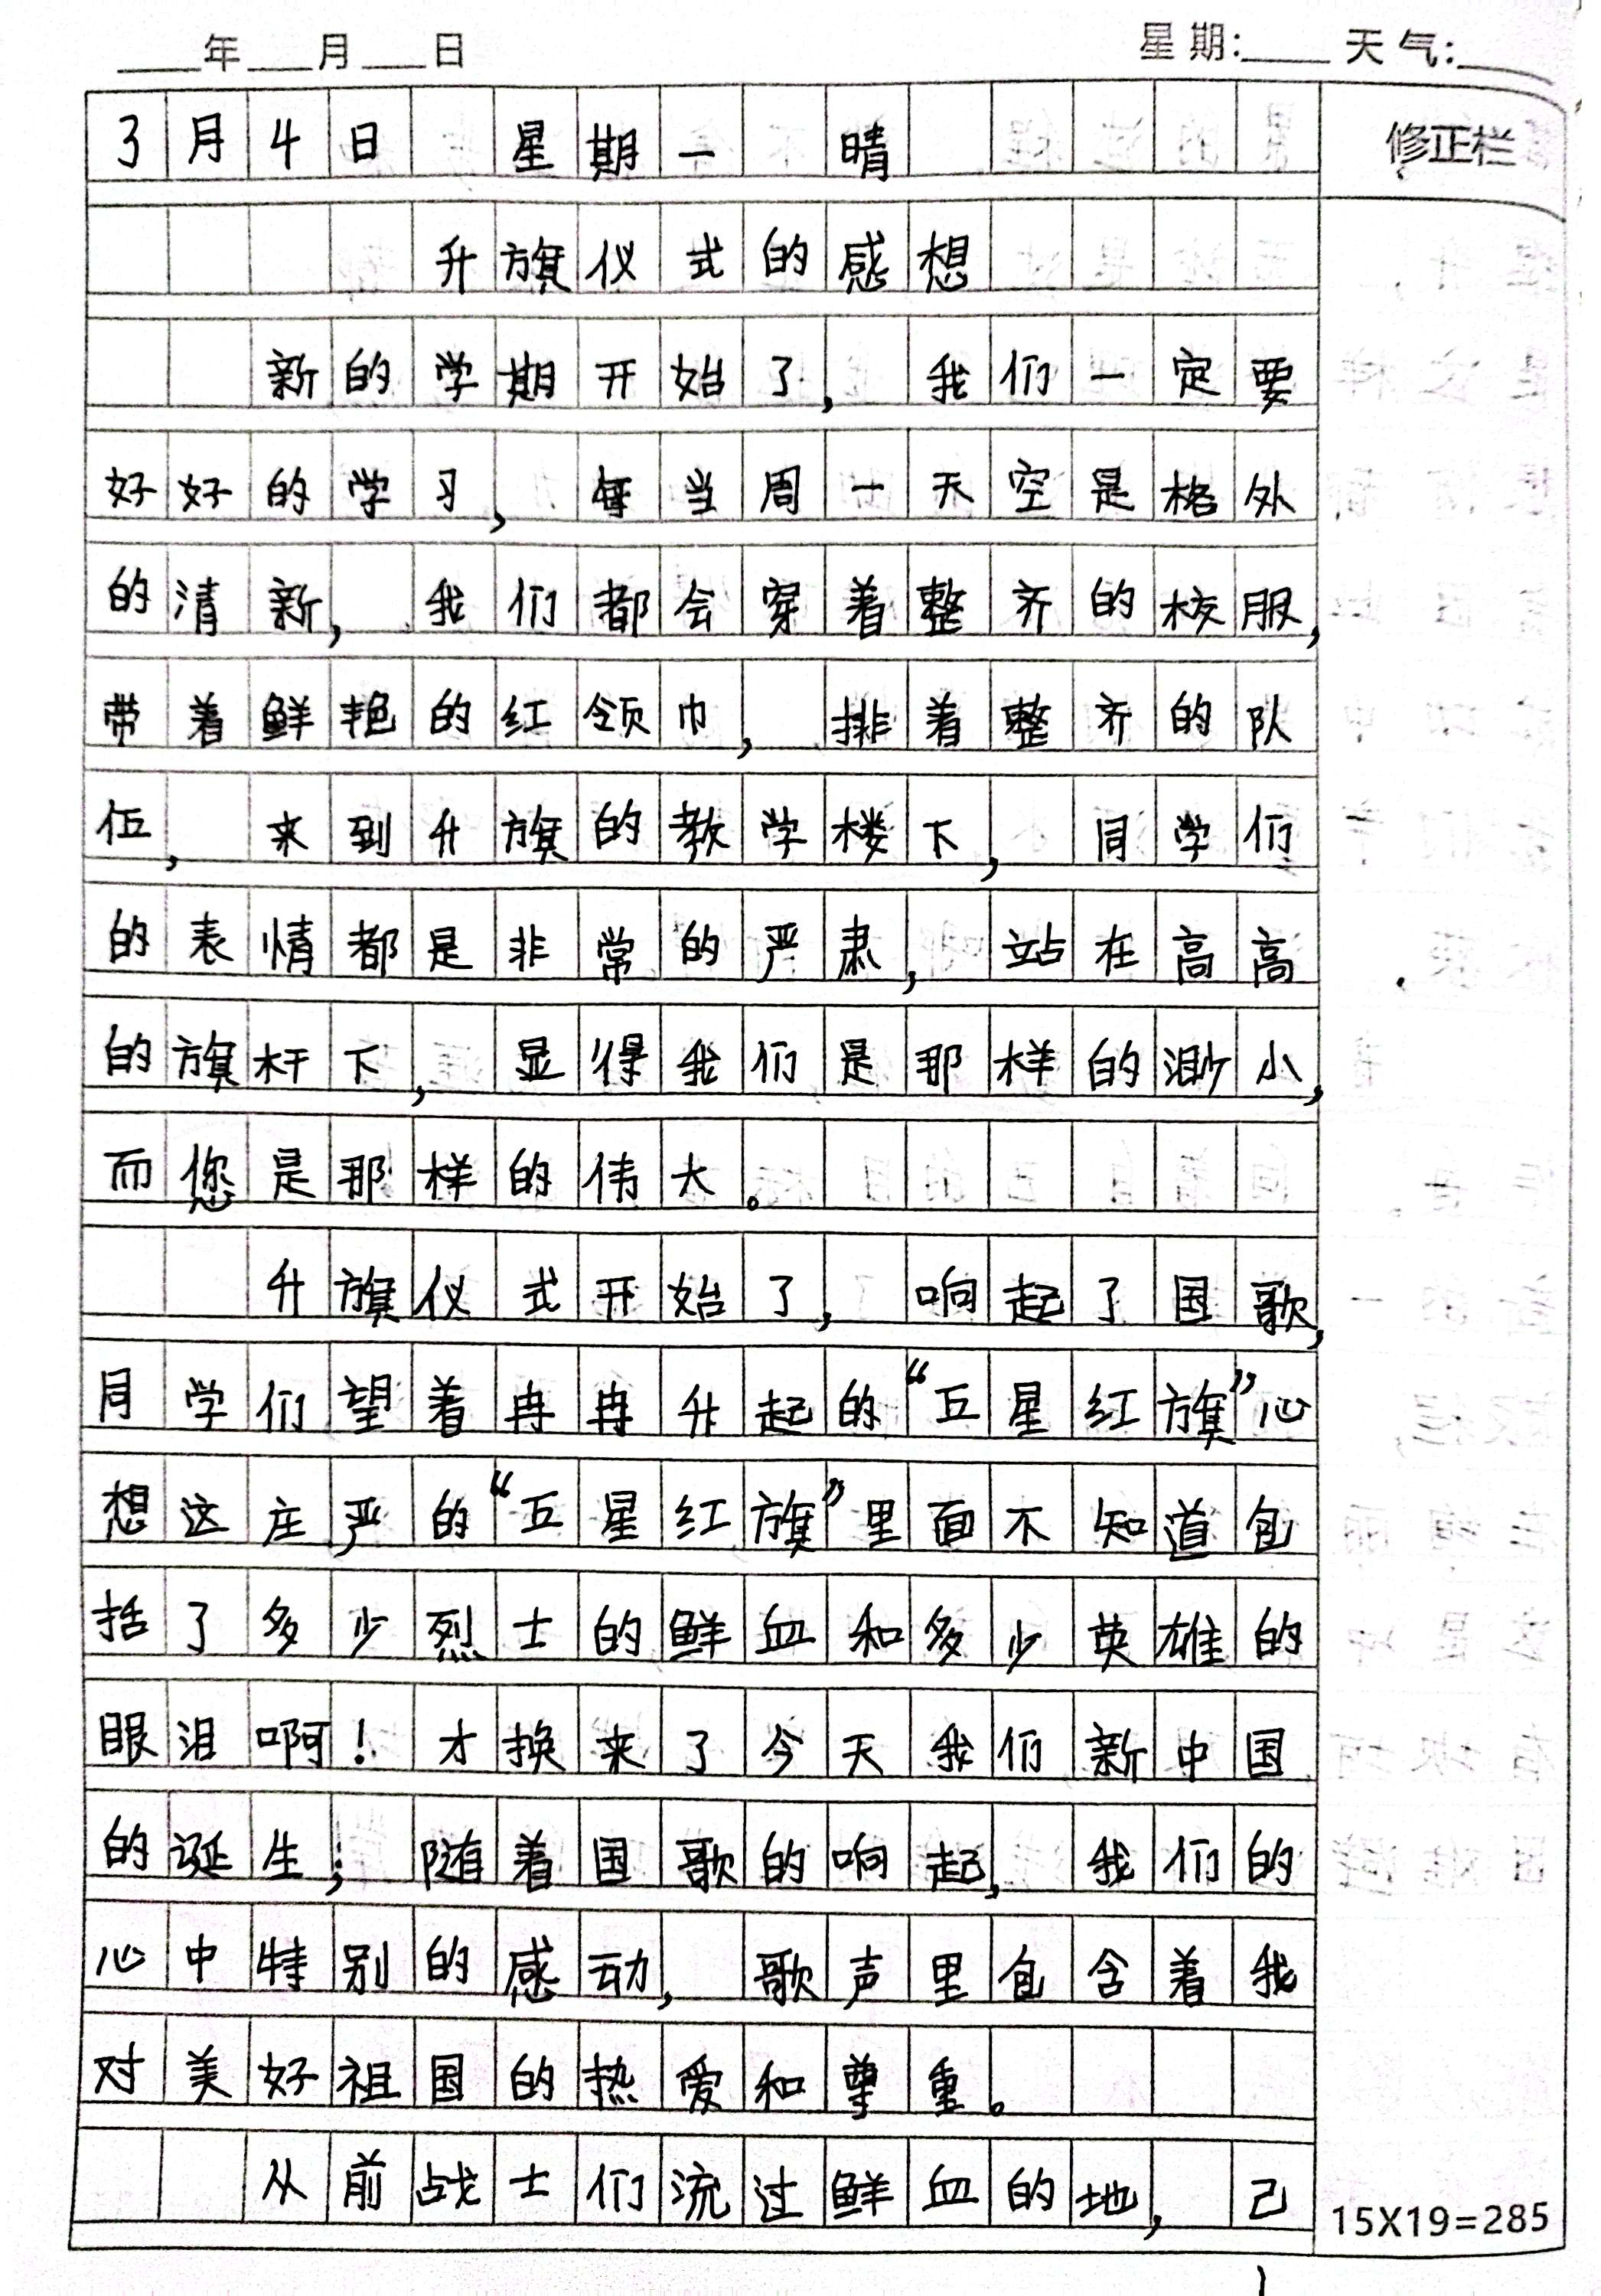 ____年___月___日 星期:____天气:____
3月4日 星期一 晴
修正栏
升旗仪式的感想
新的学期开始了,我们一定要
好好的学习,每当周一天空是格外
的清新,我们都会穿着整齐的校服,
带着鲜艳的红领巾,排着整齐的队
伍,来到升旗的教学楼下,同学们
的表情都是非常的严肃,站在高高
的旗杆下,显得我们是那样的渺小,
而您是那样的伟大。
升旗仪式开始了,响起了国歌,
同学们望着冉冉升起的“五星红旗”心
想这庄严的“五星红旗”里面不知道包
括了多少烈士的鲜血和多少英雄的
眼泪啊!才换来了今天我们新中国
的诞生;随着国歌的响起,我们的
心中特别的感动,歌声里包含着我
对美好祖国的热爱和尊重。
从前战士们流过鲜血的地,己
15X19=285